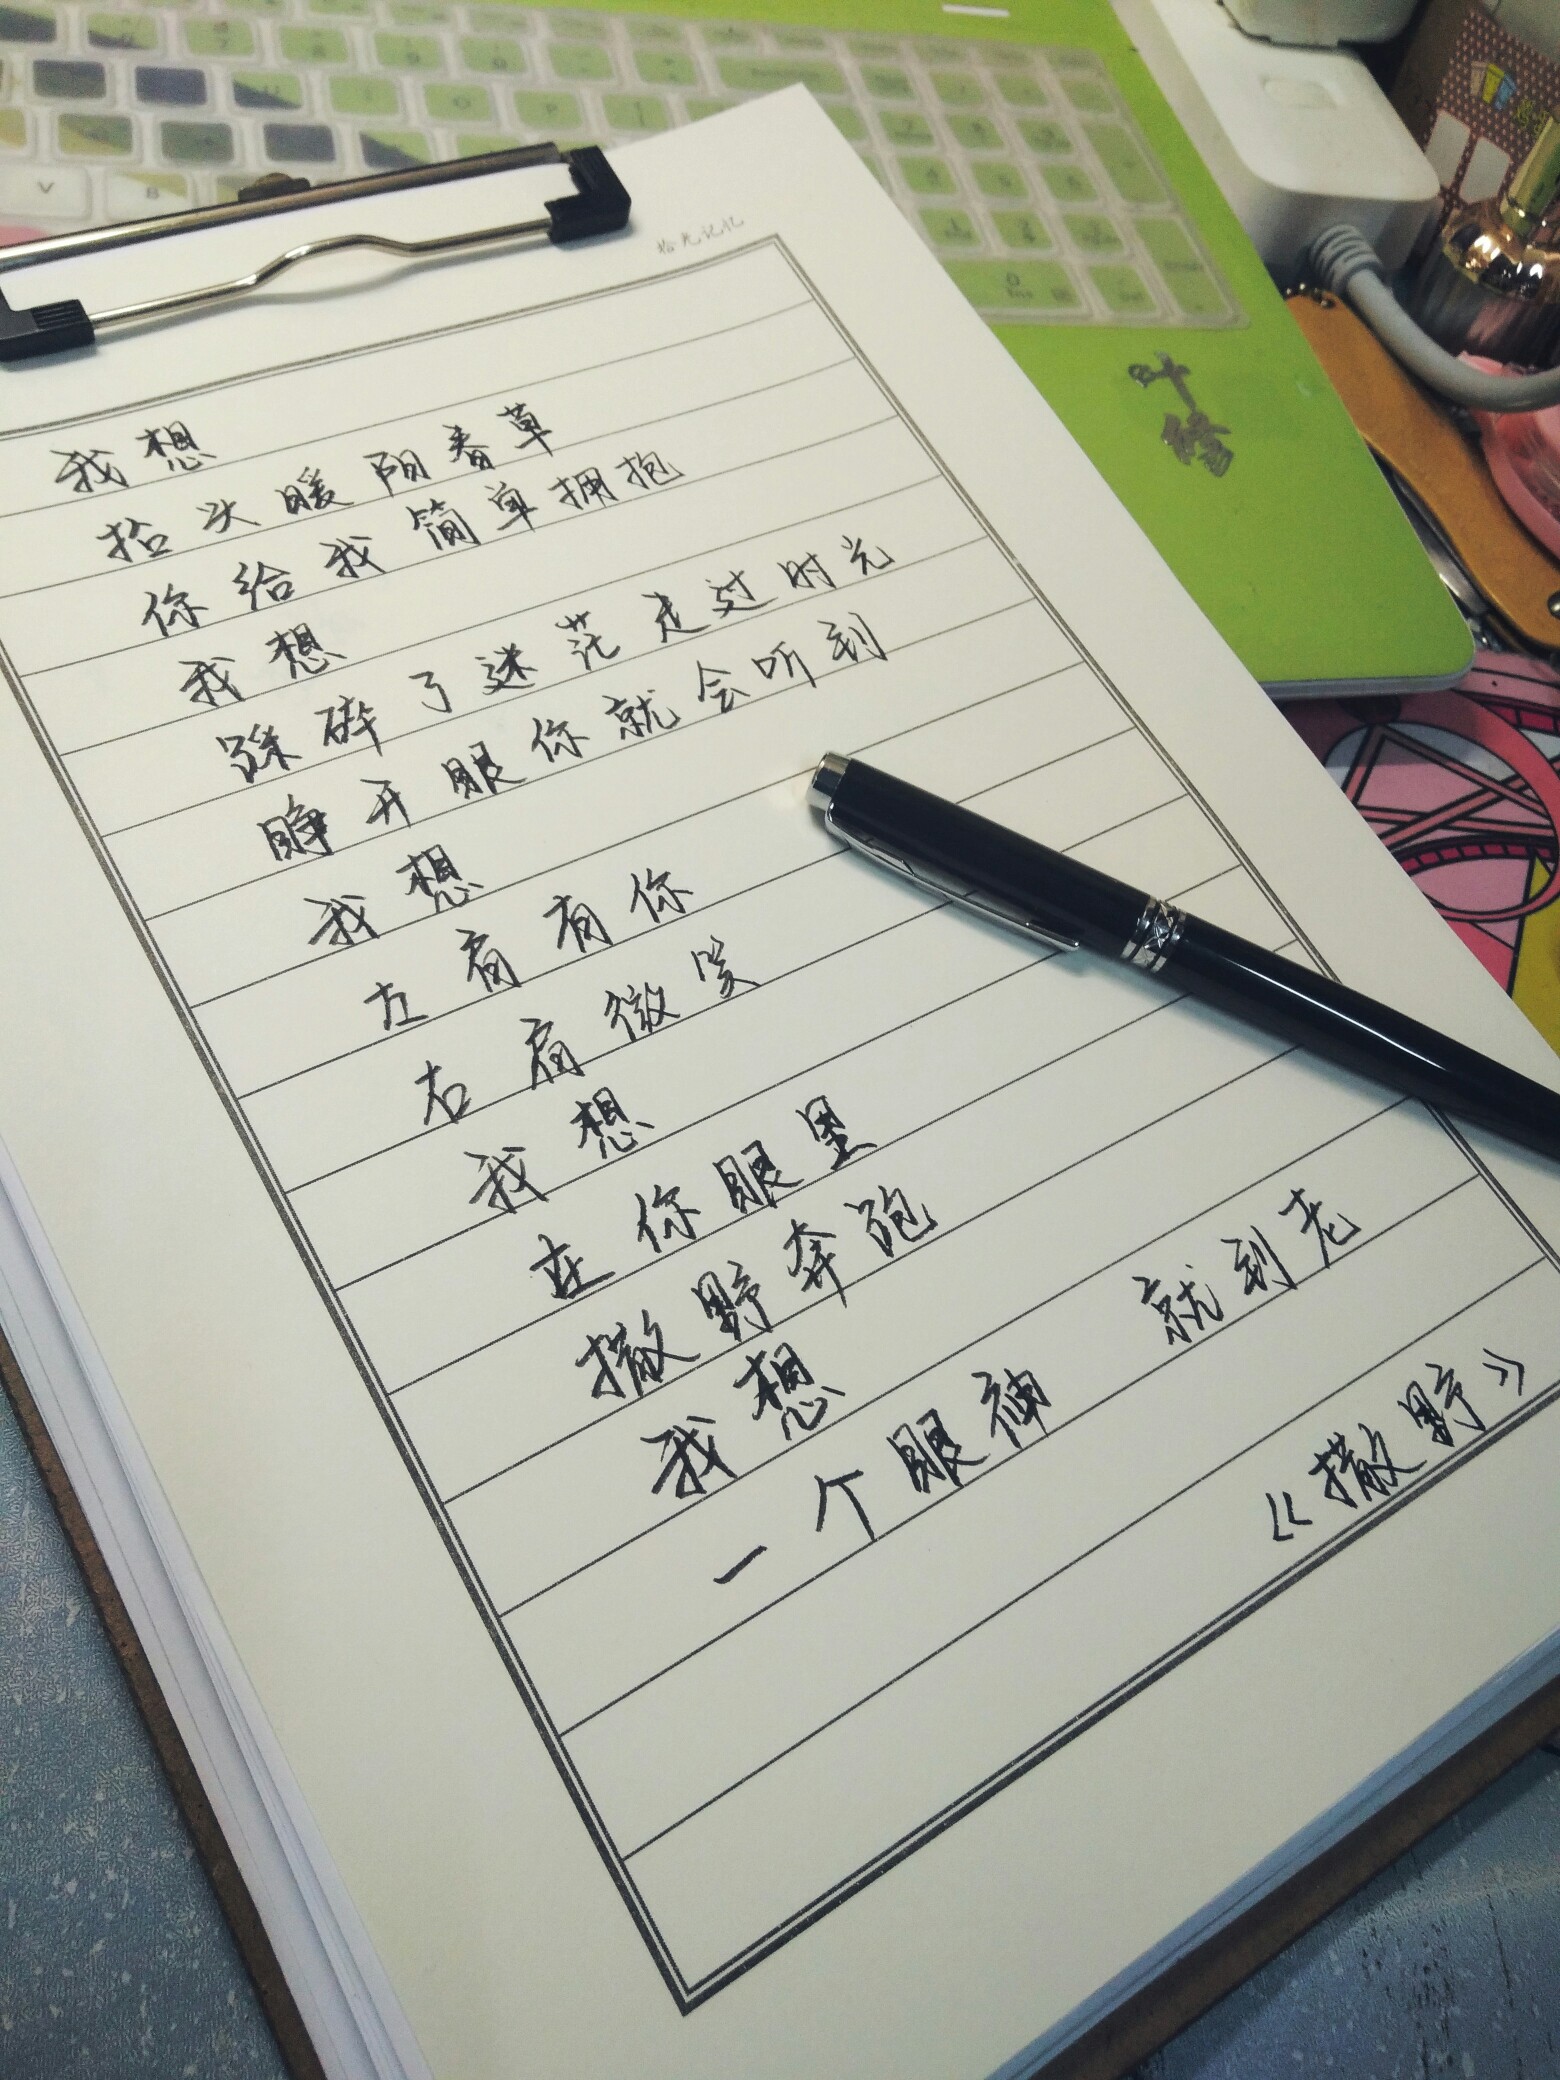 拾光记忆
我想
抬头暖阳春草
你给我简单拥抱
我想
踩碎了迷茫走过时光
睁开眼你就会听到
我想
左肩有你
右肩微笑
我想
在你眼里
撒野奔跑
我想
一个眼神 就到老
《撒野》
叶修